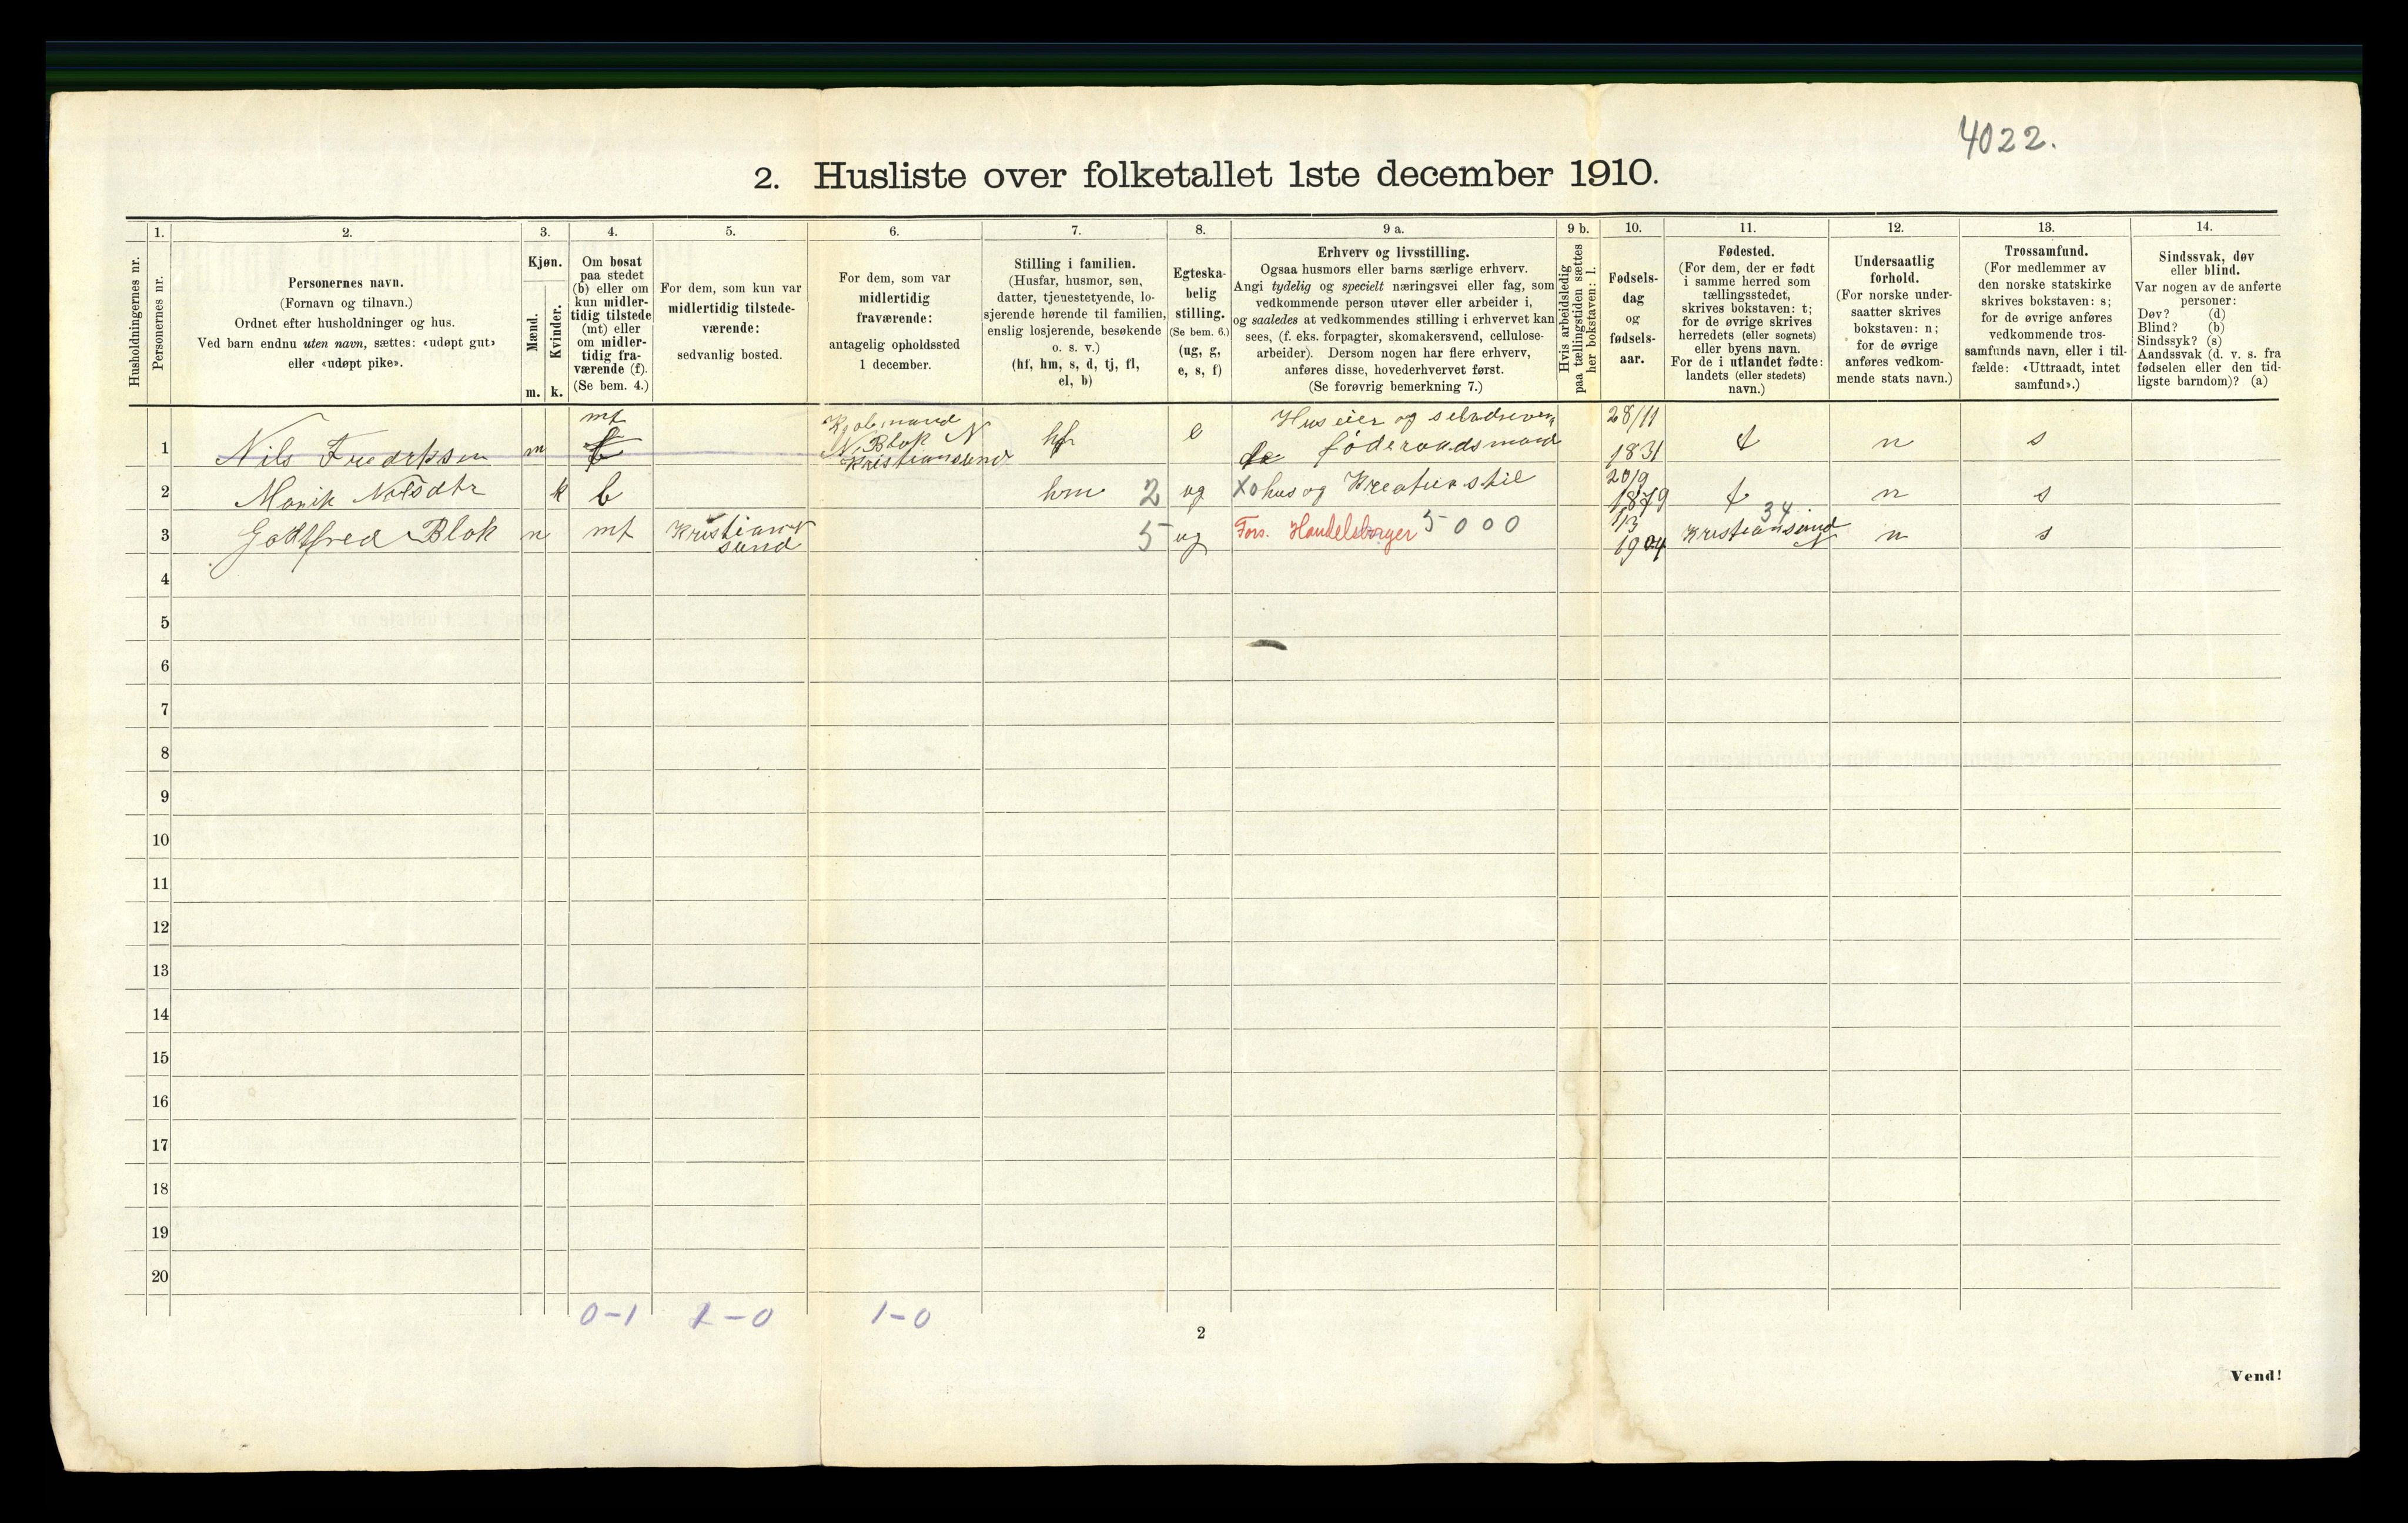 4022.
2. Husliste over folketallet 1ste december 1910.
Husholdningernes nr.
1.
Personernes nr.
2.
Personernes navn.
(Fornavn og tilnavn.)
Ordnet efter husholdninger og hus.
Ved barn endnu uten navn, sættes: «udøpt gut»
eller «udøpt pike».
3.
Kjøn.
Mænd.
Kvinder.
m. k.
4.
Om bosat
paa stedet
(b) eller om
kun midler-
tidig tilstede
(mt) eller
om midler-
tidig fra-
værende (f).
(Se bem. 4.)
5.
For dem, som kun var
midlertidig tilstede-
værende:
sedvanlig bosted.
6.
For dem, som var
midlertidig
fraværende:
antagelig opholdssted
1 december.
7.
Stilling i familien.
(Husfar, husmor, søn,
datter, tjenestetyende, lo-
sjerende hørende til familien,
enslig losjerende, besøkende
o. s. v.)
(hf, hm, s, d, tj, fl,
el, b)
8.
Egteska-
belig
stilling.
(Se bem. 6.)
(ug, g,
e, s, f)
9 a.
Erhverv og livsstilling.
Ogsaa husmors eller barns særlige erhverv.
Angi tydelig og specielt næringsvei eller fag, som
vedkommende person utøver eller arbeider i,
og saaledes at vedkommendes stilling i erhvervet kan
sees, (f. eks. forpagter, skomakersvend, cellulose-
arbeider). Dersom nogen har flere erhverv,
anføres disse, hovederhvervet først.
(Se forøvrig bemerkning 7.)
9 b.
Hvis arbeidsledig
paa tællingstiden sættes
her bokstaven: l.
10.
Fødsels-
dag
og
fødsels-
aar.
11.
Fødested.
(For dem, der er født
i samme herred som
tællingsstedet,
skrives bokstaven: t;
for de øvrige skrives
herredets (eller sognets)
eller byens navn.
For de i utlandet fødte:
landets (eller stedets)
navn.)
12.
Undersaatlig
forhold.
(For norske under-
saatter skrives
bokstaven: n;
for de øvrige
anføres vedkom-
mende stats navn.)
13.
Trossamfund.
(For medlemmer av
den norske statskirke
skrives bokstaven: s;
for de øvrige anføres
vedkommende tros-
samfunds navn, eller i til-
fælde: «Uttraadt, intet
samfund».)
14.
Sindssvak, døv
eller blind.
Var nogen av de anførte
personer:
Døv? (d)
Blind? (b)
Sindssyk? (s)
Aandssvak (d. v. s. fra
fødselen eller den tid-
ligste barndom)? (a)
1 Nils Fredrksen m mt Kjøbmand N. Blok Kristiansund N hf e Huseier og føderaadsmand 28/11 1831 t n s
2 k b hm 2 ug X0 hus og Kreaturstil 20/9 1879 t n s
3 Godtfred Blok m mt Kristiansund N 5 ug Fors. Handelsborger 5000 1/3 1904 34 Kristiansund N n s
4
5
6
7
8
9
10
11
12
13
14
15
16
17
18
19
20
0-1 1-0 1-0
2
Vend!